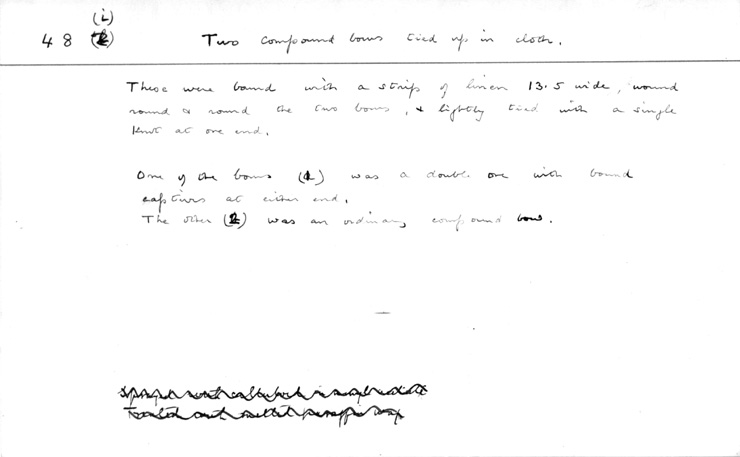 48 (i) Two compound bows tied up in cloth.
These were bound with a strip of linen 13.5 wide, wound
round & round the two bows, & lightly tied with a single
knot at one end.
One of the bows (1) was a double one with bound
captives at either end.
The other (2) was an ordinary compound bow.